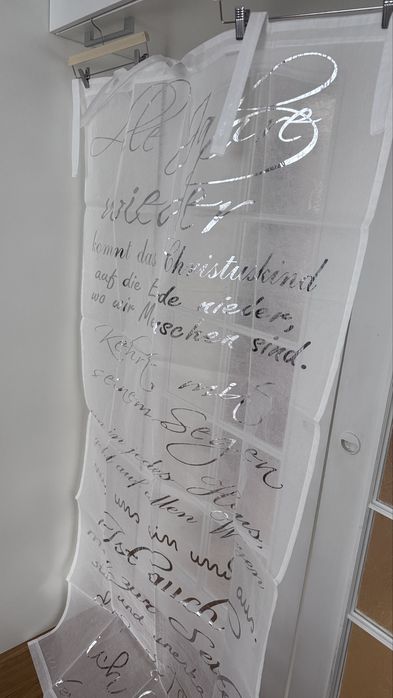 Alle Jahre
wieder
kommt das Christuskind
auf die Erde nieder,
wo wir Menschen sind.
Kehrt mit
seinem Segen
ein in jedes Haus,
geht auf allen Wegen
mit uns ein und aus.
Ist auch
mir zur Seite
still und unerkannt